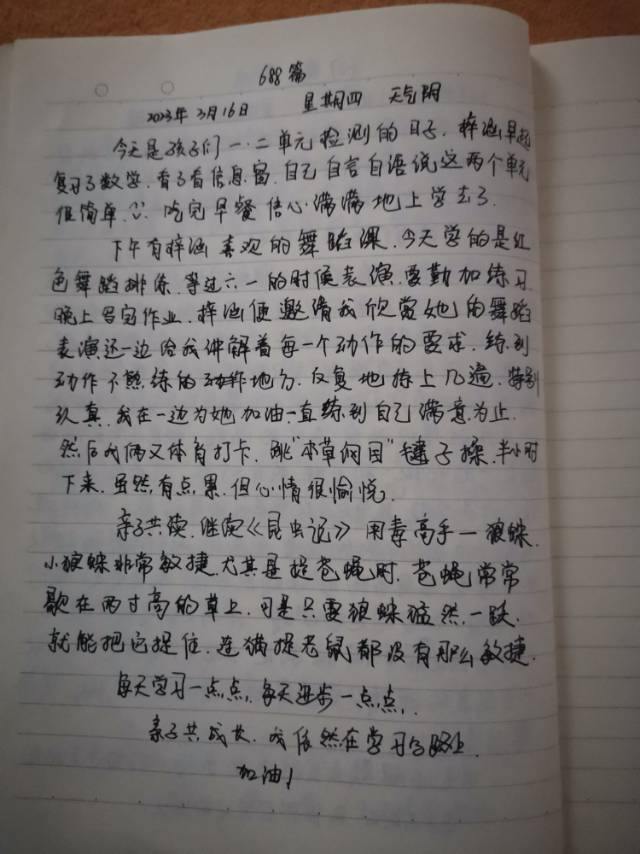 688篇
2023年3月16日 星期四 天气阴
今天是孩子们一.二单元检测的日子.梓涵早起
复习了数学.看了看信息窗.自己自言自语说这两个单元
很简单.吃完早餐信心满满地上学去了.
下午有梓涵喜欢的舞蹈课.今天学的是红
色舞蹈排练.等过六一的时候表演.要勤加练习
晚上写完作业.梓涵便邀请我欣赏她的舞蹈
表演还一边给我讲解着每一个动作的要求.练到
动作不熟练的动作地方.反复地练上几遍.特别
认真.我在一边为她加油一直练到自己满意为止.
然后我俩又体育打卡.跳"本草纲目"毽子操.半小时
下来.虽然有点累.但心情很愉悦.
亲子共读.继续《昆虫记》用毒高手一狼蛛.
小狼蛛非常敏捷.尤其是捉苍蝇时.苍蝇常常
歇在两寸高的草上.可是只要狼蛛猛然一跃.
就能把它捉住.连猫捉老鼠都没有那么敏捷.
每天学习一点点.每天进步一点点.
亲子共成长.我依然在学习的路上.
加油!